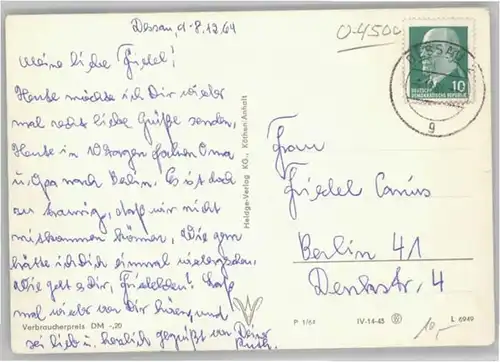 Dessau, d. 8.12.64
O-4500
Meine liebe Friedel!
Heute möchte ich Dir wieder
mal recht liebe Grüße senden,
Heute in 10 Tagen fahren Oma
u. Opa nach Berlin. Es ist doch
zu traurig, daß wir nicht
mitkommen können. Wie gern
hätte ich Dich einmal wiedergesehn.
Wie geht es Dir, Friedelchen? Laß
mal wieder von Dir hören, und
sei lieb u. herzlich gegrüßt von Deiner
Ruth.
Verbraucherpreis DM -,20
Heldge-Verlag KG., Köthen/Anhalt
DESSAU
g
DEUTSCHE
DEMOKRATISCHE REPUBLIK
10
Frau
Friedel
Berlin 41
Denkstr. 4
P 1/64 IV-14-45 L 6949
10,-